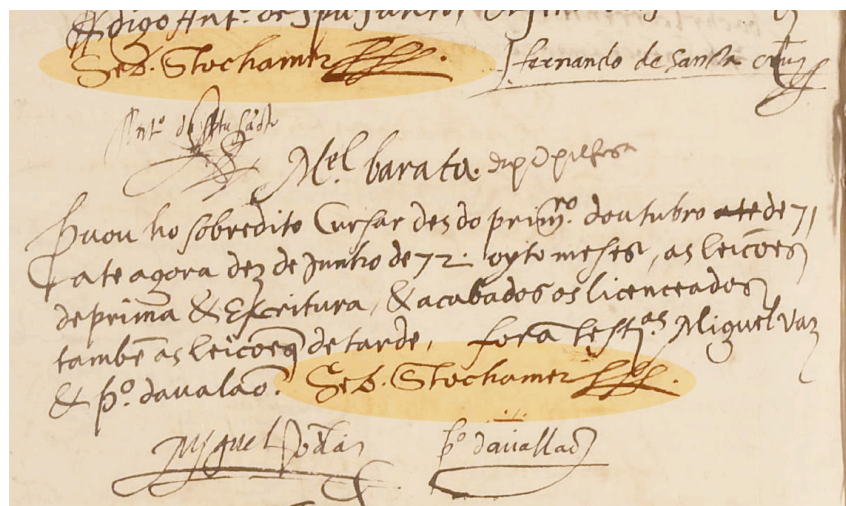 digo Ant.º de Spũ Sancto,
Seb. Stochamer
fernando de Sancta Cruz
Ant.º de Spũ Sãcto
M.el barata.
Prouou ho sobredito Cursar desdo prim.ro doutubro de 71
ate agora dez de Junho de 72. oyto meses, as leicões
de prima & Escritura, & acabados os licenceados
tambẽ as leicões de tarde, forã test.as Miguel vaz
& p.º daualaõ. Seb. Stochamer
Miguel vaz
p.º dauallaõ